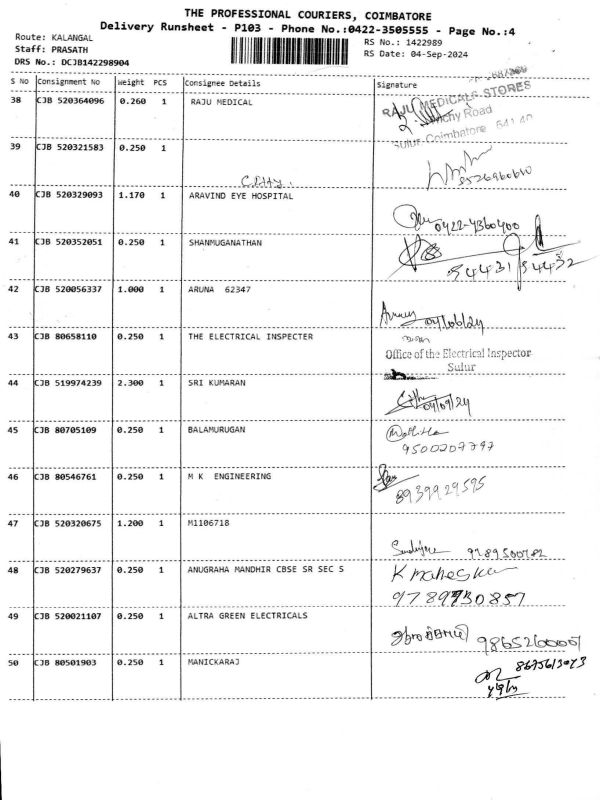 THE PROFESSIONAL COURIERS, COIMBATORE
Delivery Runsheet - P103 - Phone No.:0422-3505555 - Page No.:4
Route: KALANGAL
Staff: PRASATH
DRS No.: DCJB142298904
RS No.: 1422989
RS Date: 04-Sep-2024
S No Consignment No Weight PCS Consignee Details Signature
38 CJB 520364096 0.260 1 RAJU MEDICAL
RAJU MEDICALS STORES
Trichy Road
Sulur Coimbatore
39 CJB 520321583 0.250 1
8526960610
40 CJB 520329093 1.170 1 ARAVIND EYE HOSPITAL
0422-4360400
41 CJB 520352051 0.250 1 SHANMUGANATHAN
94431 54432
42 CJB 520056337 1.000 1 ARUNA 62347
43 CJB 80658110 0.250 1 THE ELECTRICAL INSPECTER
Office of the Electrical Inspector
Sulur
44 CJB 519974239 2.300 1 SRI KUMARAN
04/09/24
45 CJB 80705109 0.250 1 BALAMURUGAN
9500207797
46 CJB 80546761 0.250 1 M K ENGINEERING
8939929595
47 CJB 520320675 1.200 1 M1106718
9789500782
48 CJB 520279637 0.250 1 ANUGRAHA MANDHIR CBSE SR SEC S
K mahesku
9789930857
49 CJB 520021107 0.250 1 ALTRA GREEN ELECTRICALS
50 CJB 80501903 0.250 1 MANICKARAJ